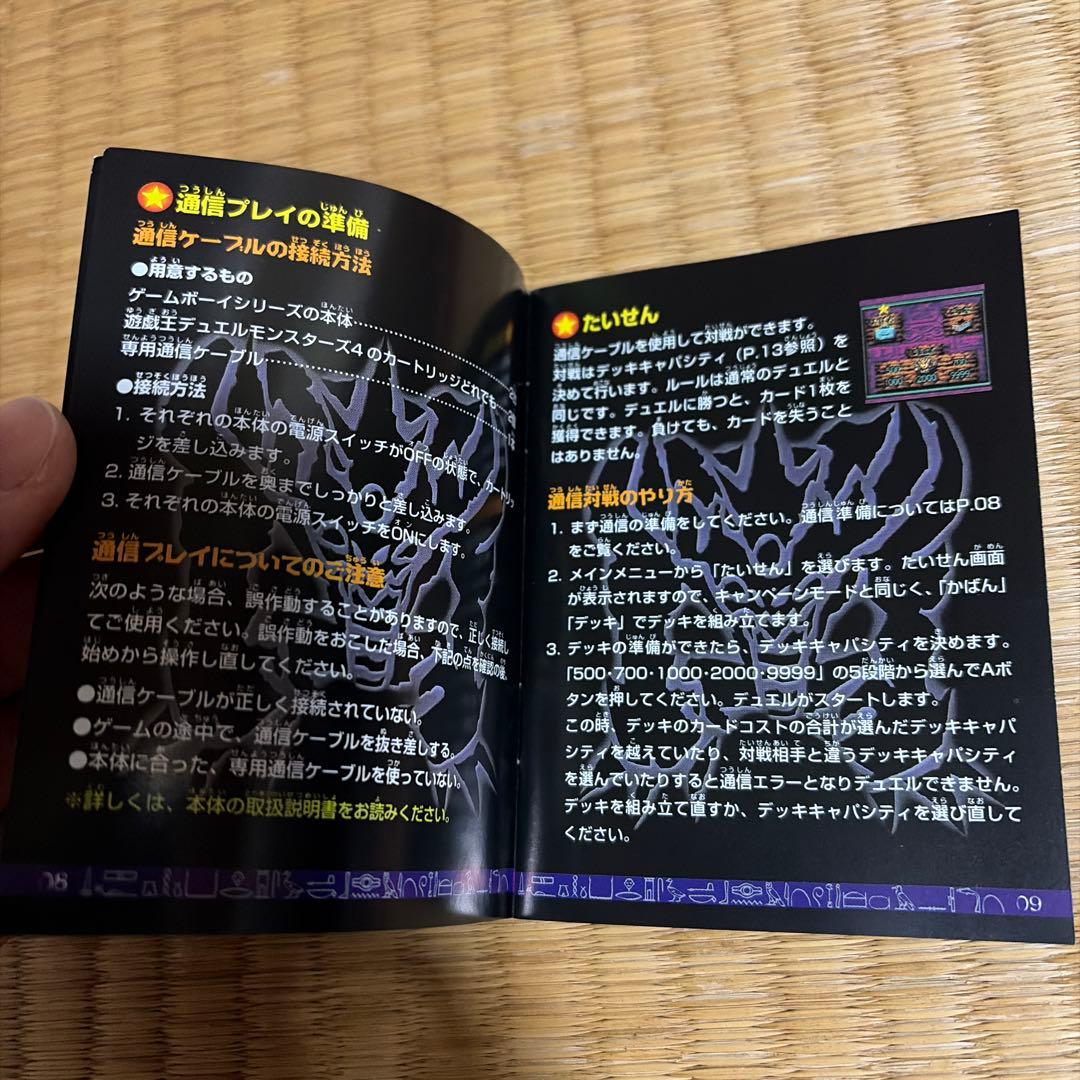 通信プレイの準備
通信ケーブルの接続方法
●用意するもの
ゲームボーイシリーズの本体
遊戯王デュエルモンスターズ4のカートリッジどれでも
専用通信ケーブル
●接続方法
1. それぞれの本体の電源スイッチがOFFの状態で、カートリッ
ジを差し込みます。
2. 通信ケーブルを奥までしっかりと差し込みます。
3. それぞれの本体の電源スイッチをONにします。
通信プレイについてのご注意
次のような場合、誤作動することがありますので、正しく接続し
てご使用ください。誤作動をおこした場合、下記の点を確認の後、
始めから操作し直してください。
●通信ケーブルが正しく接続されていない。
●ゲームの途中で、通信ケーブルを抜き差しする。
●本体に合った、専用通信ケーブルを使っていない。
※詳しくは、本体の取扱説明書をお読みください。
08
たいせん
通信ケーブルを使用して対戦ができます。
対戦はデッキキャパシティ(P.13参照)を
決めて行います。ルールは通常のデュエルと
同じです。デュエルに勝つと、カード1枚を
獲得できます。負けても、カードを失うこと
はありません。
通信対戦のやり方
1. まず通信の準備をしてください。通信準備についてはP.08
をご覧ください。
2. メインメニューから「たいせん」を選びます。たいせん画面
が表示されますので、キャンペーンモードと同じく、「かばん」
「デッキ」でデッキを組み立てます。
3. デッキの準備ができたら、デッキキャパシティを決めます。
「500・700・1000・2000・9999」の5段階から選んでAボ
タンを押してください。デュエルがスタートします。
この時、デッキのカードコストの合計が選んだデッキキャパ
シティを越えていたり、対戦相手と違うデッキキャパシティ
を選んでいたりすると通信エラーとなりデュエルできません。
デッキを組み立て直すか、デッキキャパシティを選び直して
ください。
09